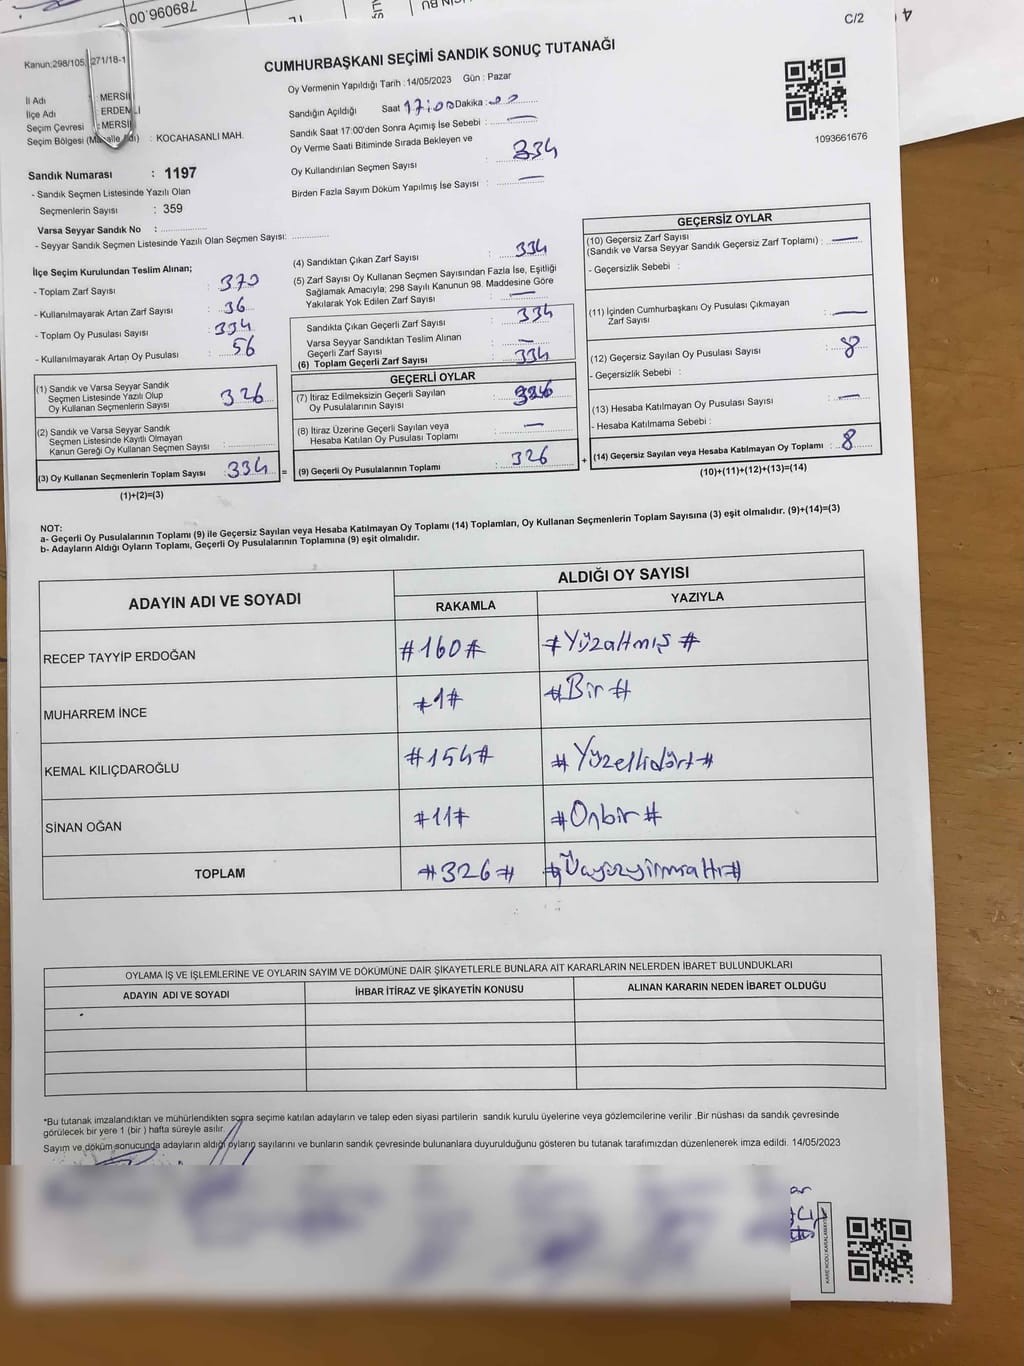 789096.00
C/2
Kanun:298/105, 271/18-1
CUMHURBAŞKANI SEÇİMİ SANDIK SONUÇ TUTANAĞI
Oy Vermenin Yapıldığı Tarih : 14/05/2023 Gün : Pazar
İl Adı : MERSİ
İlçe Adı ERDEMLİ
Seçim Çevresi : MERSİ
Seçim Bölgesi : KOCAHASANLI MAH.
Sandığın Açıldığı Saat 17:00 Dakika : 00
Sandık Saat 17:00'den Sonra Açımış İse Sebebi : —
Oy Verme Saati Bitiminde Sırada Bekleyen ve
Oy Kullandırılan Seçmen Sayısı : 334
Birden Fazla Sayım Döküm Yapılmış İse Sayısı : —
1093661676
Sandık Numarası : 1197
- Sandık Seçmen Listesinde Yazılı Olan
Seçmenlerin Sayısı : 359
Varsa Seyyar Sandık No :
- Seyyar Sandık Seçmen Listesinde Yazılı Olan Seçmen Sayısı:
İlçe Seçim Kurulundan Teslim Alınan;
- Toplam Zarf Sayısı : 370
- Kullanılmayarak Artan Zarf Sayısı : 36
- Toplam Oy Pusulası Sayısı : 334
- Kullanılmayarak Artan Oy Pusulası : 56
(1) Sandık ve Varsa Seyyar Sandık
Seçmen Listesinde Yazılı Olup
Oy Kullanan Seçmenlerin Sayısı : 326
(2) Sandık ve Varsa Seyyar Sandık
Seçmen Listesinde Kayıtlı Olmayan
Kanun Gereği Oy Kullanan Seçmen Sayısı :
(3) Oy Kullanan Seçmenlerin Toplam Sayısı : 334 =
(1)+(2)=(3)
(4) Sandıktan Çıkan Zarf Sayısı : 334
(5) Zarf Sayısı Oy Kullanan Seçmen Sayısından Fazla İse, Eşitliği
Sağlamak Amacıyla; 298 Sayılı Kanunun 98. Maddesine Göre
Yakılarak Yok Edilen Zarf Sayısı : —
Sandıkta Çıkan Geçerli Zarf Sayısı : 334
Varsa Seyyar Sandıktan Teslim Alınan
Geçerli Zarf Sayısı : —
(6) Toplam Geçerli Zarf Sayısı : 334
GEÇERLİ OYLAR
(7) İtiraz Edilmeksizin Geçerli Sayılan
Oy Pusulalarının Sayısı : 326
(8) İtiraz Üzerine Geçerli Sayılan veya
Hesaba Katılan Oy Pusulası Toplamı : —
(9) Geçerli Oy Pusulalarının Toplamı : 326 +
GEÇERSİZ OYLAR
(10) Geçersiz Zarf Sayısı
(Sandık ve Varsa Seyyar Sandık Geçersiz Zarf Toplamı) : —
- Geçersizlik Sebebi :
(11) İçinden Cumhurbaşkanı Oy Pusulası Çıkmayan
Zarf Sayısı : —
(12) Geçersiz Sayılan Oy Pusulası Sayısı : 8
- Geçersizlik Sebebi :
(13) Hesaba Katılmayan Oy Pusulası Sayısı : —
- Hesaba Katılmama Sebebi :
(14) Geçersiz Sayılan veya Hesaba Katılmayan Oy Toplamı : 8
(10)+(11)+(12)+(13)=(14)
NOT:
a- Geçerli Oy Pusulalarının Toplamı (9) ile Geçersiz Sayılan veya Hesaba Katılmayan Oy Toplamı (14) Toplamları, Oy Kullanan Seçmenlerin Toplam Sayısına (3) eşit olmalıdır. (9)+(14)=(3)
b- Adayların Aldığı Oyların Toplamı, Geçerli Oy Pusulalarının Toplamına (9) eşit olmalıdır.
ADAYIN ADI VE SOYADI ALDIĞI OY SAYISI
RAKAMLA YAZIYLA
RECEP TAYYİP ERDOĞAN #160# #Yüzaltmış#
MUHARREM İNCE #1# #Bir#
KEMAL KILIÇDAROĞLU #154# #Yüzellidört#
SİNAN OĞAN #11# #Onbir#
TOPLAM #326# #Üçyüzyirmialtı#
OYLAMA İŞ VE İŞLEMLERİNE VE OYLARIN SAYIM VE DÖKÜMÜNE DAİR ŞİKAYETLERLE BUNLARA AİT KARARLARIN NELERDEN İBARET BULUNDUKLARI
ADAYIN ADI VE SOYADI İHBAR İTİRAZ VE ŞİKAYETİN KONUSU ALINAN KARARIN NEDEN İBARET OLDUĞU
*Bu tutanak imzalandıktan ve mühürlendikten sopra seçime katılan adayların ve talep eden siyasi partilerin sandık kurulu üyelerine veya gözlemcilerine verilir .Bir nüshası da sandık çevresinde
görülecek bir yere 1 (bir ) hafta süreyle asılır.
Sayım ve döküm sonucunda adayların aldığı oyların sayılarını ve bunların sandık çevresinde bulunanlara duyurulduğunu gösteren bu tutanak tarafımızdan düzenlenerek imza edildi. 14/05/2023